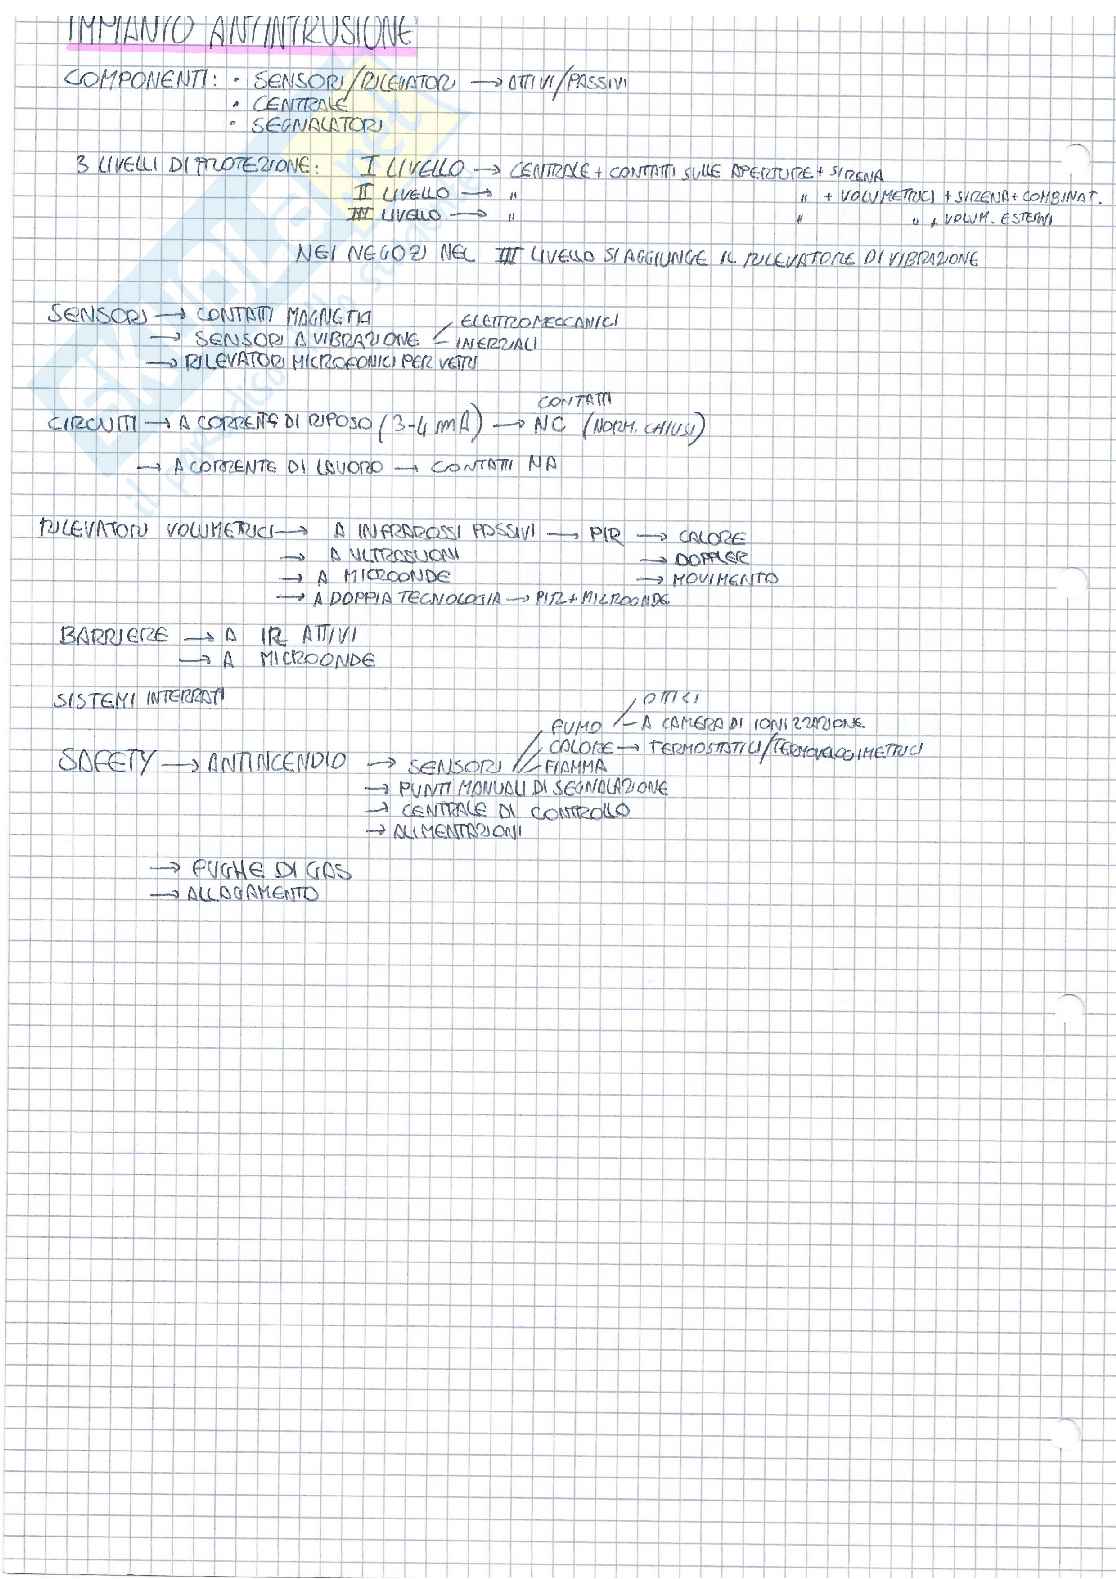 IMPIANTO ANTINTRUSIONE
COMPONENTI: • SENSORI/RILEVATORI → ATTIVI/PASSIVI
• CENTRALE
• SEGNALATORI
3 LIVELLI DI PROTEZIONE: I LIVELLO → CENTRALE + CONTATTI SULLE APERTURE + SIRENA
II LIVELLO → " " + VOLUMETRICI + SIRENA + COMBINAT.
III LIVELLO → " " " + VOLUM. ESTERNI
NEI NEGOZI NEL III LIVELLO SI AGGIUNGE IL RILEVATORE DI VIBRAZIONE
SENSORI → CONTATTI MAGNETICI
ELETTROMECCANICI
→ SENSORI A VIBRAZIONE – INERZIALI
→ RILEVATORI MICROFONICI PER VETRI
CONTATTI
CIRCUITI → A CORRENTE DI RIPOSO (3-4 mA) → NC (NORM. CHIUSI)
→ A CORRENTE DI LAVORO → CONTATTI NA
RILEVATORI VOLUMETRICI → A INFRAROSSI PASSIVI → PIR → CALORE
→ A ULTRASUONI → DOPPLER
→ A MICROONDE → MOVIMENTO
→ A DOPPIA TECNOLOGIA → PIR + MICROONDE
BARRIERE → A IR ATTIVI
→ A MICROONDE
SISTEMI INTERRATI
OTTICI
FUMO – A CAMERA DI IONIZZAZIONE
CALORE → TERMOSTATICI/TERMOVELOCIMETRICI
SAFETY → ANTINCENDIO → SENSORI FIAMMA
→ PUNTI MANUALI DI SEGNALAZIONE
→ CENTRALE DI CONTROLLO
→ ALIMENTAZIONI
→ FUGHE DI GAS
→ ALLAGAMENTO
SKUOLA.net